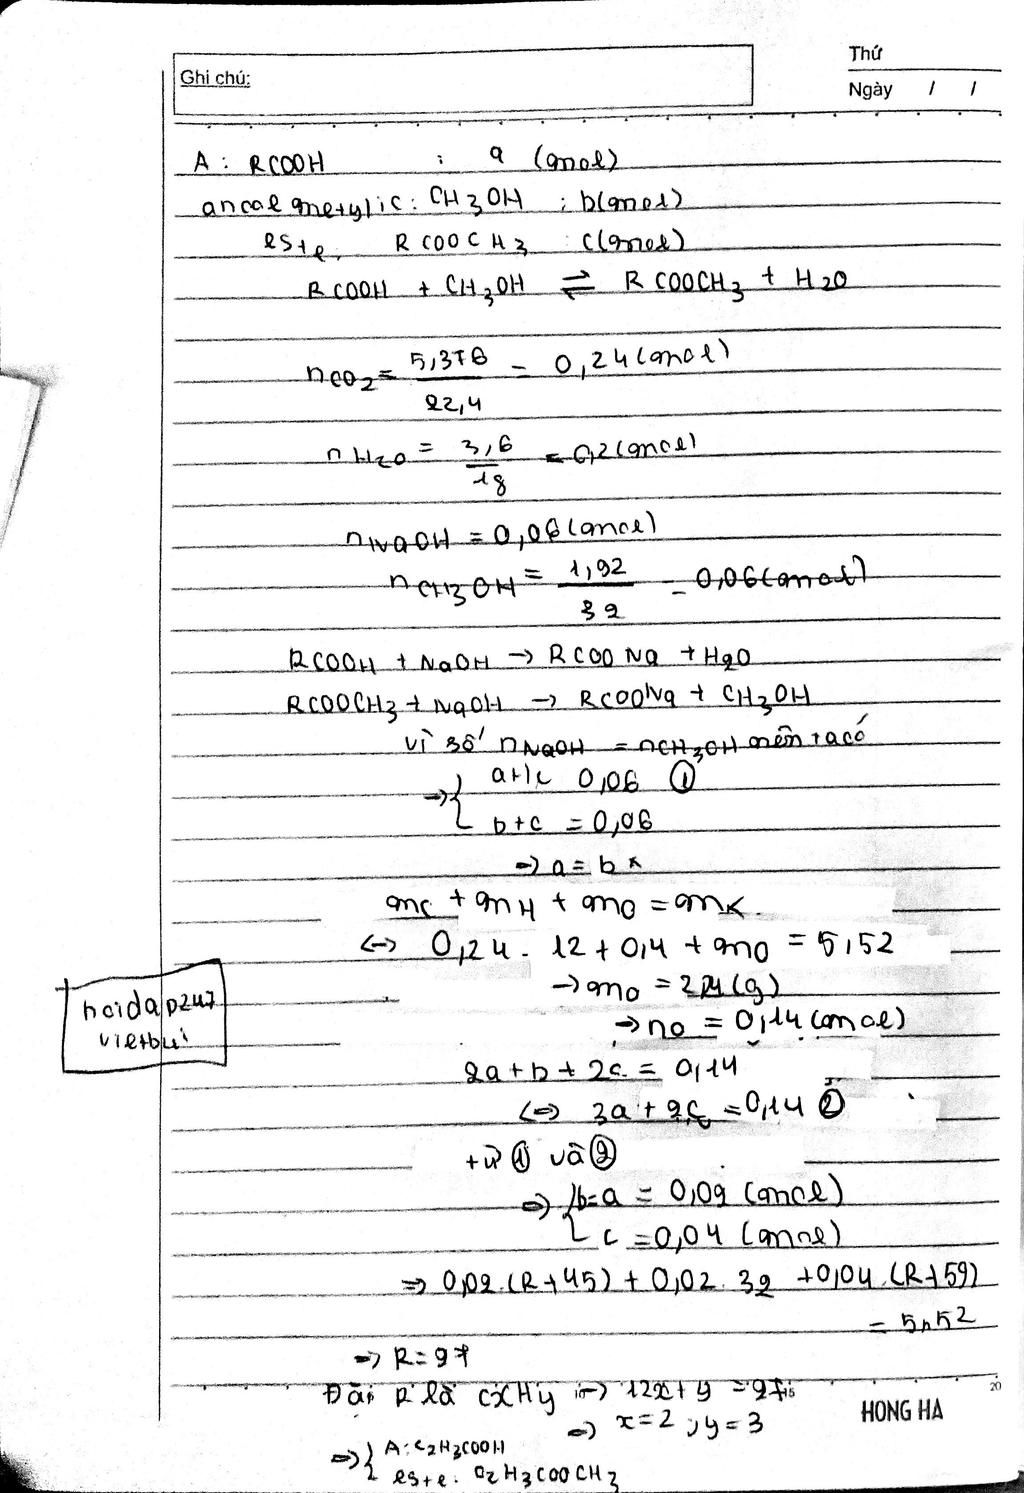 Thứ
Ghi chú:
Ngày / /
A : RCOOH : a (mol)
ancol metylic : CH3OH : b(mol)
este: RCOOCH3 : c(mol)
RCOOH + CH3OH ⇌ RCOOCH3 + H2O
nCO2 = 5,376/22,4 = 0,24 (mol)
nH2O = 3,6/18 = 0,2 (mol)
nNaOH = 0,06 (mol)
nCH3OH = 1,92/32 = 0,06 (mol)
RCOOH + NaOH → RCOONa + H2O
RCOOCH3 + NaOH → RCOONa + CH3OH
vì số nNaOH = nCH3OH nên ta có
=> { a+c 0,06 ①
b+c = 0,06
=> a = b
mC + mH + mO = mX
<-> 0,24. 12 + 0,4 + mO = 5,52
→ mO = 2,24 (g)
hoidap247
→ nO = 0,14 (mol)
vietbui
2a + b + 2c = 0,14
<=> 3a + 2c = 0,14 ②
từ ① và ②
=> { b=a = 0,02 (mol)
c = 0,04 (mol)
=> 0,02.(R+45) + 0,02. 32 + 0,04.(R+59)
= 5,52
=> R = 27
20
Đặt R là CxHy => 12x + y = 27
HONG HA
=> x = 2 ; y = 3
=> { A: C2H3COOH
este: C2H3COOCH3